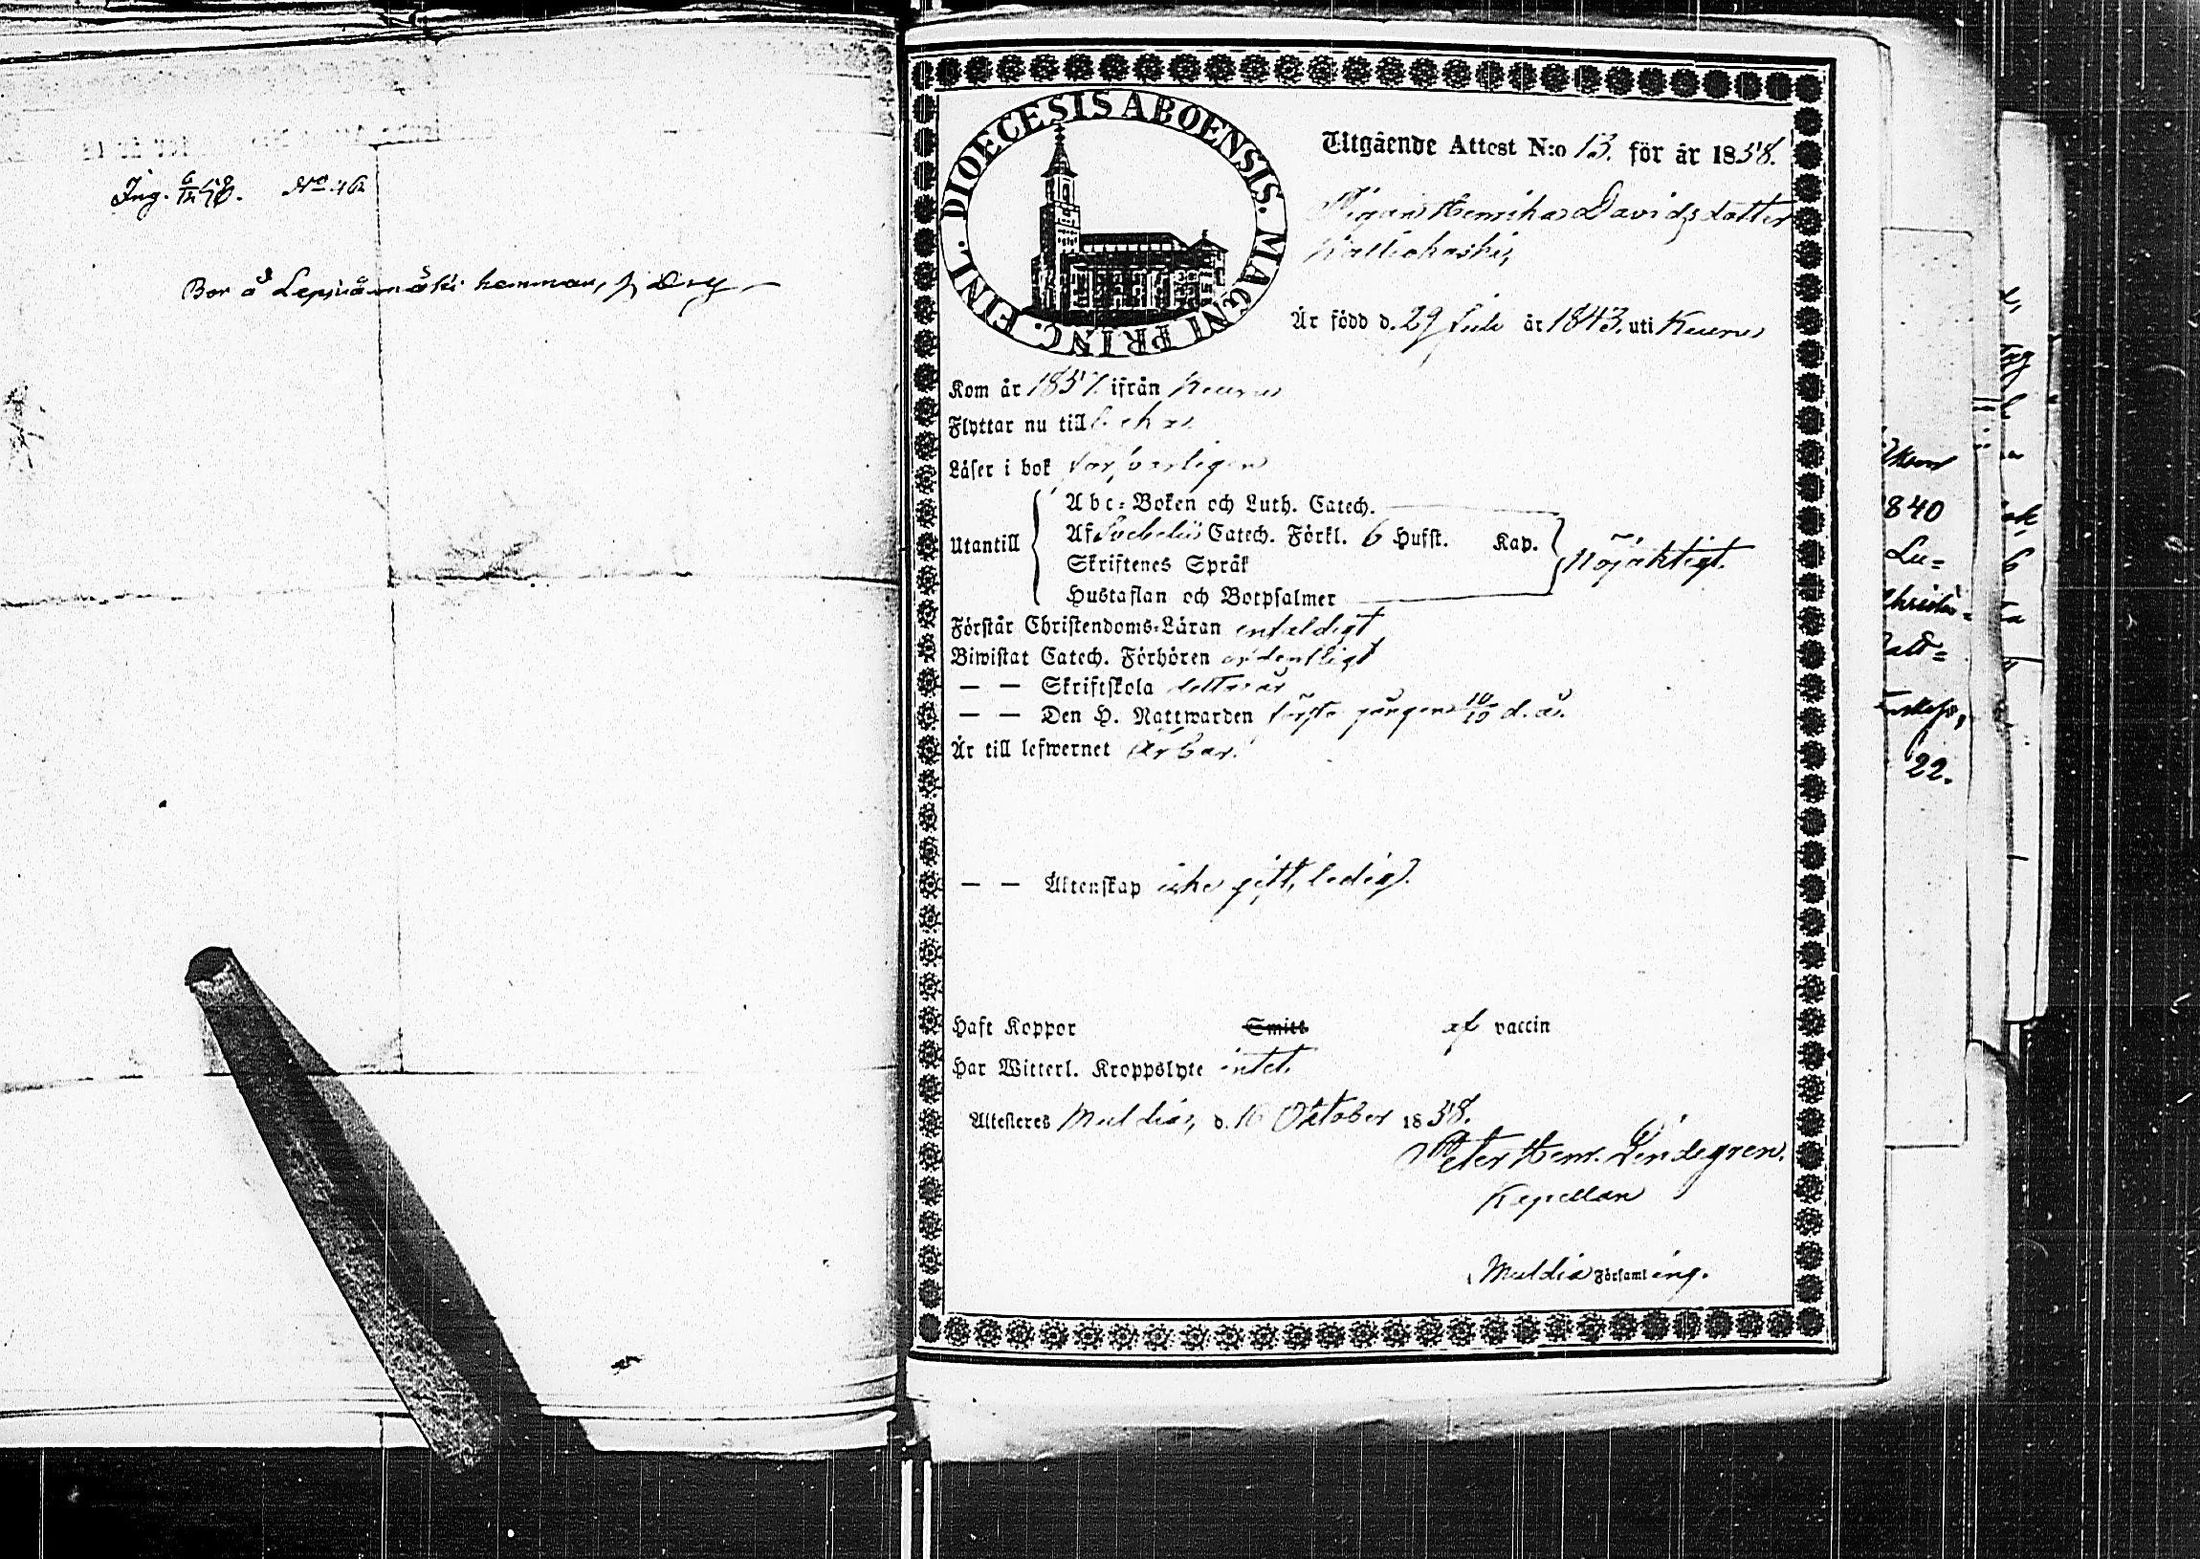 Ing. 6/12 58. No 46
Bor å Lepänmäki hemman,
DIOECESIS ABOENSIS. MAGNI PRINC. FINL.
Utgående Attest N:o 13. för år 1858.
Pigan Henrika Davidsdotter
Kalliokoski,
Är född d. 29 Juli år 1843. uti Keuru
Kom år 1857. ifrån Keuru
Flyttar nu till
Läser i bok försvarligen
Utantill
Abc-Boken och Luth. Catech.
Af Svebelii Catech. Förkl. 6 Hufst. Kap.
Skriftenes Språk
Hustaflan och Botpsalmer
Nöjaktigt.
Förstår Christendoms-Läran enfaldigt
Biwistat Catech. Förhören ordentligt
— — Skriftskola detta år
— — Den H. Nattwarden första gången 10/10 d. å.
Är till lefwernet ärbar.
— — Äktenskap icke gift, ledig.
Haft Koppor Smitt af vaccin
Har Witterl. Kroppslyte intet.
Attesteres Muldia, d. 16 Oktober 1858.
Peter Henr. Lindegren.
Kapellan
Muldia Församling.
1840
Lu=
Christi=
22.